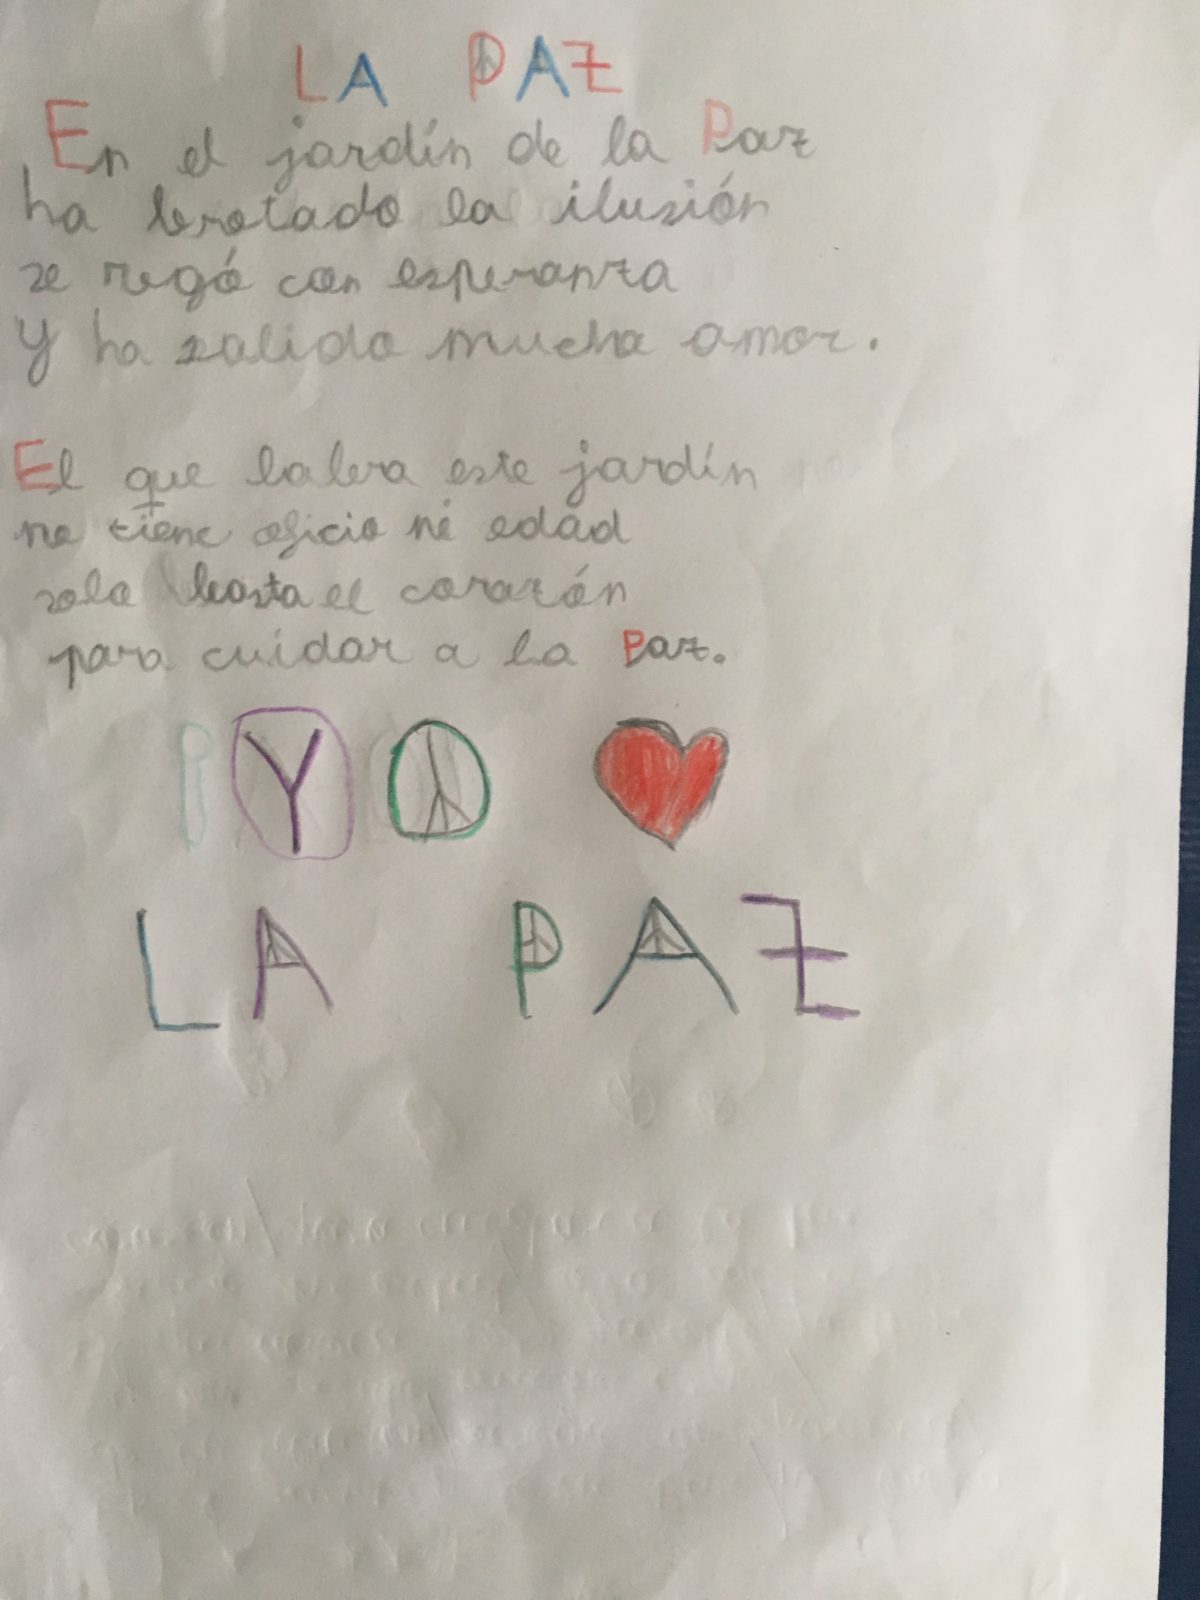 LA PAZ
En el jardín de la Paz
ha brotado la ilusión
se regó con esperanza
Y ha salido mucha amor.
El que labra este jardín
no tiene oficio ni edad
solo basta el corazón
para cuidar a la Paz.
YO
LA PAZ